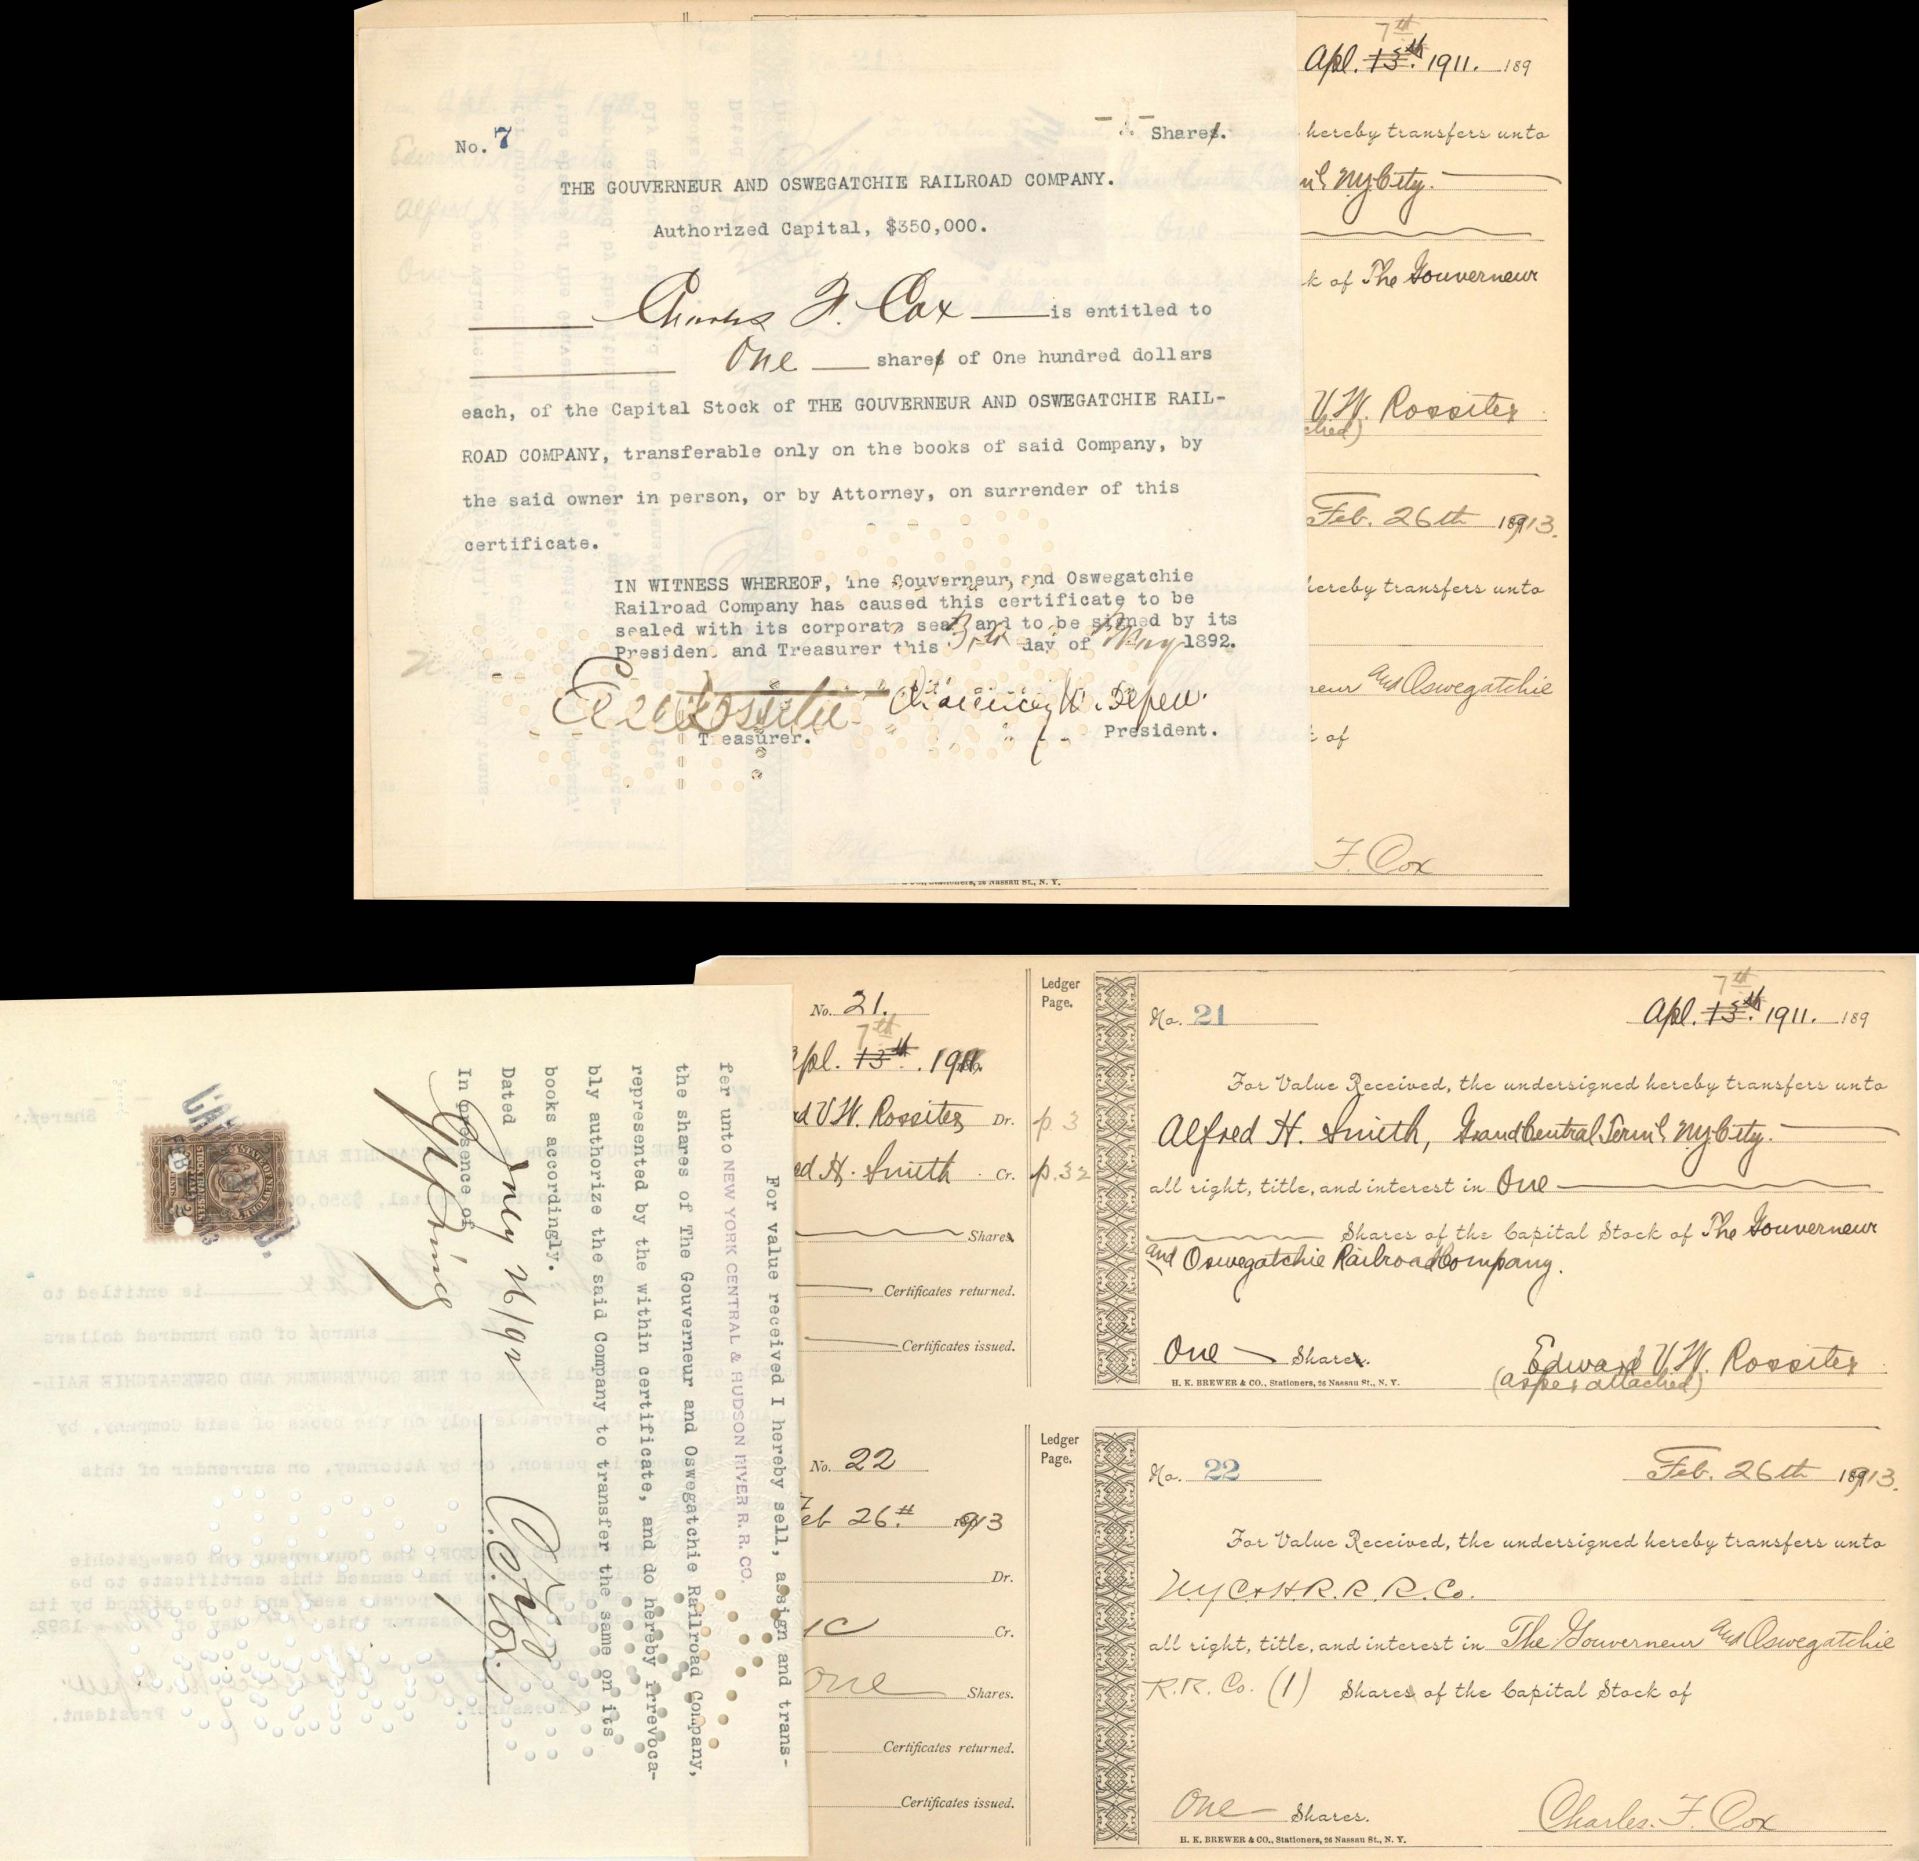 No. 7
Shares.
THE GOUVERNEUR AND OSWEGATCHIE RAILROAD COMPANY.
Authorized Capital, $350,000.
Charles F. Cox is entitled to
One shares of One hundred dollars
each, of the Capital Stock of THE GOUVERNEUR AND OSWEGATCHIE RAIL-
ROAD COMPANY, transferable only on the books of said Company, by
the said owner in person, or by Attorney, on surrender of this
certificate.
IN WITNESS WHEREOF, The Gouverneur and Oswegatchie
Railroad Company has caused this certificate to be
sealed with its corporate seal and to be signed by its
President and Treasurer this day of May 1892.
E V W Rossiter Chauncey M. Depew
Treasurer. President.
7th
Apl. 13th. 1911. 189
hereby transfers unto
NY City.
k of The Gouverneur
V.W. Rossiter
ched)
Feb. 26th 1913.
hereby transfers unto
neur and Oswegatchie
of
F. Cox
Stationers, 26 Nassau St., N. Y.
For value received I hereby sell, assign and trans-
fer unto NEW YORK CENTRAL & HUDSON RIVER R. R. CO.
the shares of The Gouverneur and Oswegatchie Railroad Company,
represented by the within certificate, and do hereby irrevoca-
bly authorize the said Company to transfer the same on its
books accordingly.
Dated
In presence of
No. 21.
7th
Apl. 13th. 1911.
d V.W. Rossiter Dr. p. 3
ed H. Smith Cr. p. 32
Shares
Certificates returned.
Certificates issued.
Ledger
Page.
No. 21
7th
Apl. 13th. 1911. 189
For Value Received, the undersigned hereby transfers unto
Alfred H. Smith, Grand Central Term'l NY City.
all right, title, and interest in One
Shares of the Capital Stock of The Gouverneur
and Oswegatchie Railroad Company.
One Shares.
Edward V.W. Rossiter
(as per attached)
H. K. BREWER & CO., Stationers, 26 Nassau St., N. Y.
No. 22
Feb 26th. 1913
Dr.
Cr.
One Shares.
Certificates returned.
Certificates issued.
Ledger
Page.
No. 22
Feb. 26th 1913.
For Value Received, the undersigned hereby transfers unto
N.Y.C. & H.R.R.R.Co.
all right, title, and interest in The Gouverneur and Oswegatchie
R.R. Co. (1) Shares of the Capital Stock of
One Shares.
Charles. F. Cox
H. K. BREWER & CO., Stationers, 26 Nassau St., N. Y.